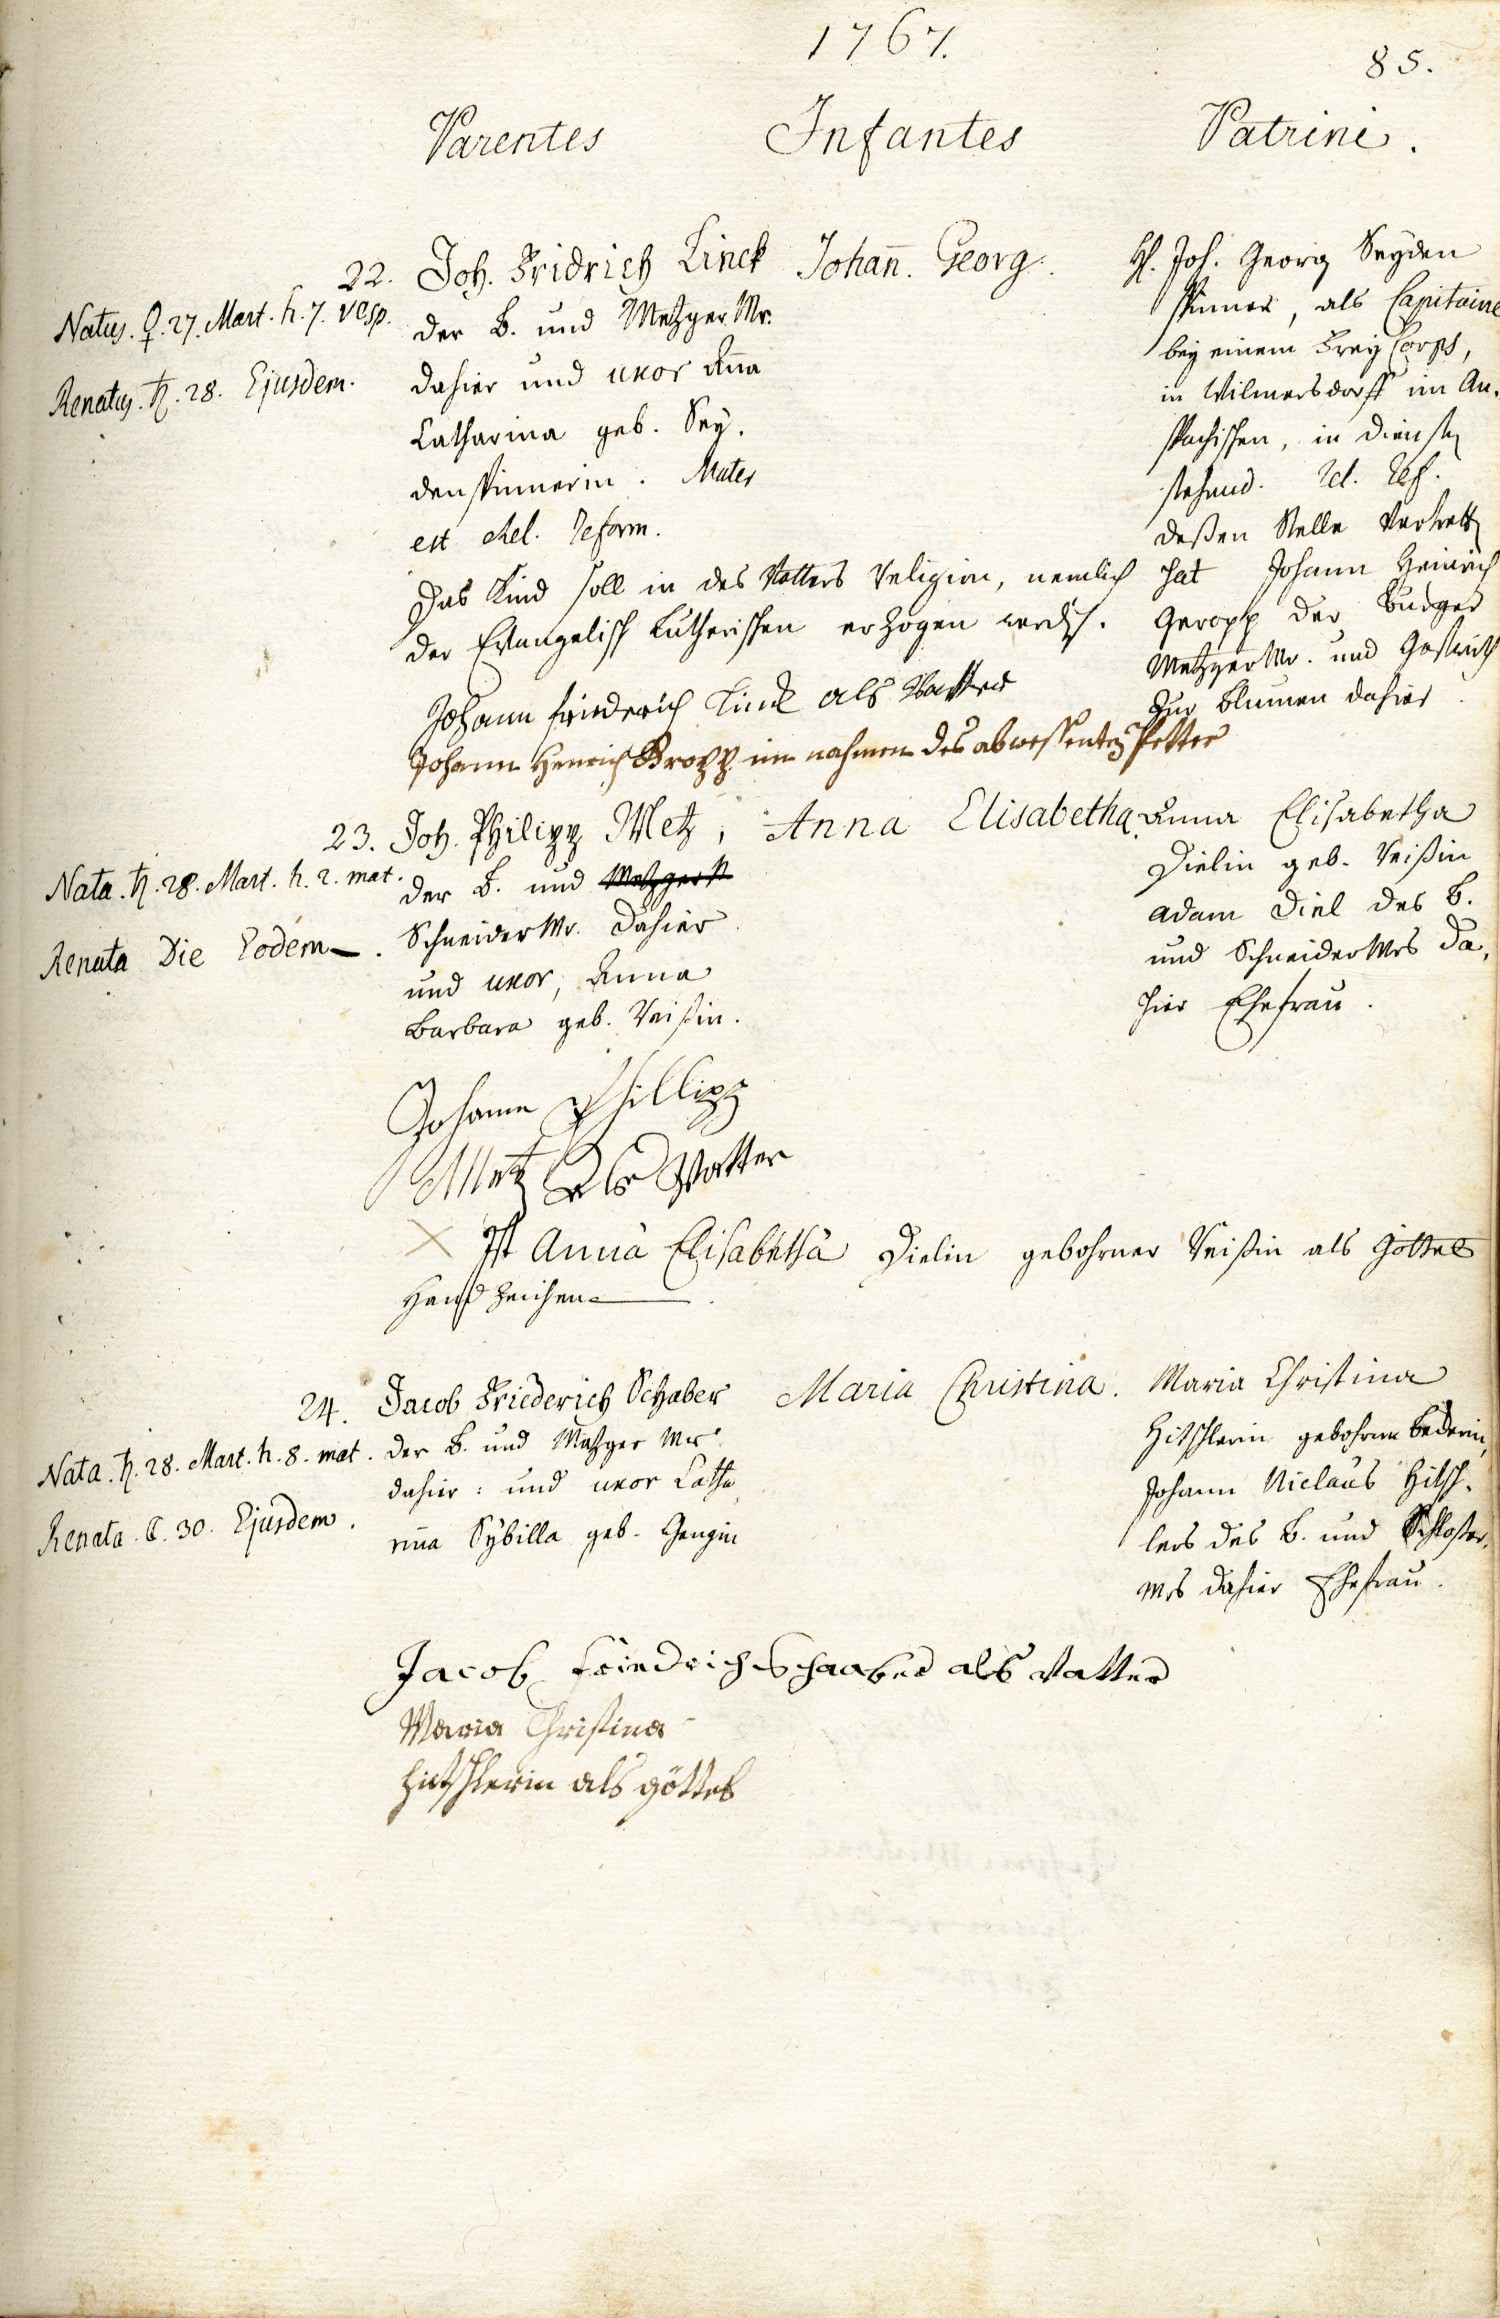 1767.
85.
Parentes Infantes Patrini.
22.
Natus. ♀. 27. Mart. h. 7. vesp.
Renatus. ♄. 28. Ejusdem.
Joh. Fridrich Linck
der B. und Metzger Mr.
dahier und uxor Añna
Catharina geb. Sey-
denspinnerin. Mater
est Rel. reform.
Johañ. Georg.
H. Joh. Georg Seyden
spinner, als Capitaine
bey einem Frey Corps,
in Wilmersdorff im An-
spachischen, in Diensten
stehend. Rel. Ref.
deßen Stelle vertretten
hat Johann Heinrich
Geropp der Burger
Metzger Mr. und Gastwirth
zur Blumen dahier.
Das Kind soll in des Vatters Religion, nemlich
der Evangelisch Lutherischen erzogen werden.
Johann friederich Linck als Vatter
Johann Henrich Gropp im nahmen des abwessenten Petter
23.
Nata. ♄. 28. Mart. h. 2. mat.
Renata Die Eodem.
Joh. Philipp Metz,
der B. und Metzger
Schneider Mr. dahier
und uxor, Anna
Barbara geb. Veißin.
Anna Elisabetha.
Anna Elisabetha
Dielin geb. Veißin
Adam Diel des B.
und Schneider Mrs da-
hier Ehefrau.
Johann Phillipp
Metz Als Vatter
X Ist Anna Elisabetha Dielin gebohrner Veißin als Göttel
Hand Zeichen.
24.
Nata. ♄. 28. Mart. h. 8. mat.
Renata. ☾. 30. Ejusdem.
Jacob Friederich Schaber
der B. und Metzger Mr.
dahier: und uxor Catha
riña Sybilla geb. Gengin
Maria Christina.
Maria Christina
Hitschlerin gebohrne Bederin,
Johann Niclaus Hitsch-
lers des B. und Schloßer-
Mrs dahier Ehefrau.
Jacob Friedrich Schaaber als Vatter
Maria Christina
hitschlerin als göttel